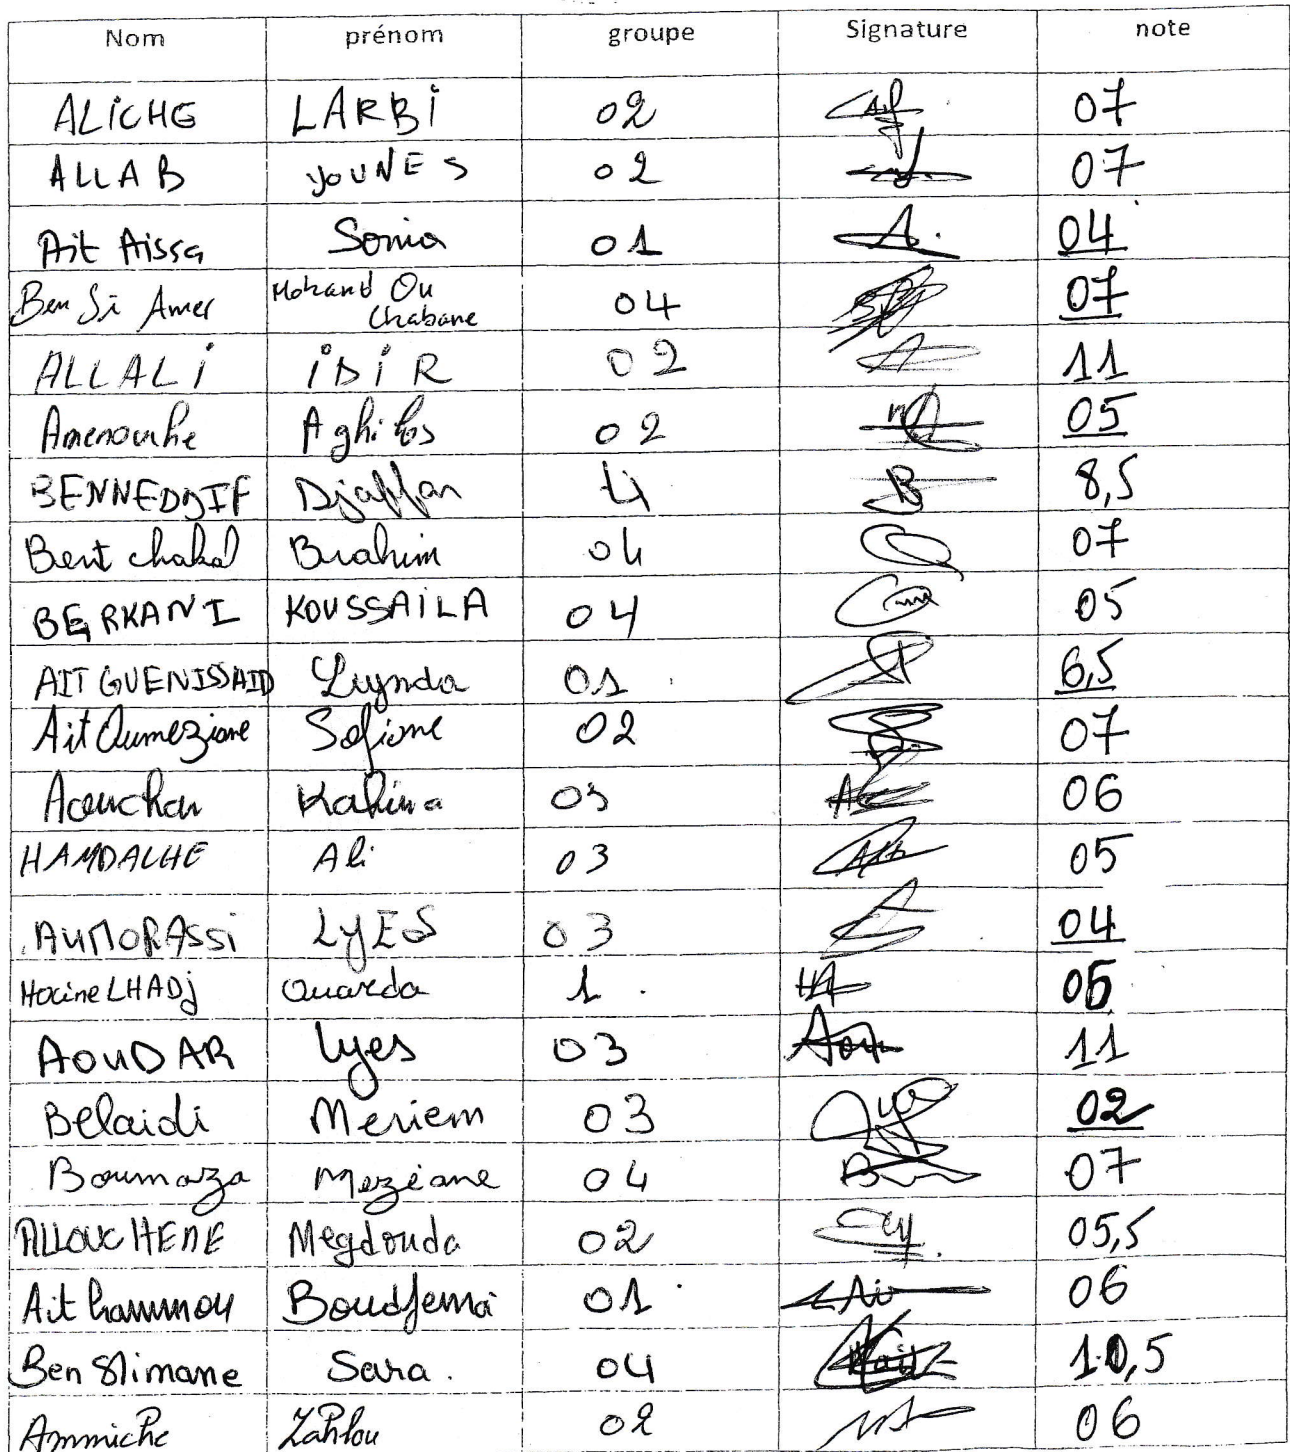 Nom prénom groupe Signature note
ALICHE LARBI 02 07
ALLAB YOUNES 02 07
Ait Aissa Sonia 01 04
Ben Si Amer Mohand Ou Chabane 04 07
ALLALI IDIR 02 11
Amenouche Aghiles 02 05
BENNEDDJF Djaffar 4 8,5
Bent chakal Brahim 04 07
BERKANI KOUSSAILA 04 05
AIT GUENISSAID Lynda 01 6,5
Ait Oumeziane Sofiane 02 07
Aouchar Kahina 03 06
HAMDACHE Ali 03 05
AUMORASSI LYES 03 04
Hocine LHADj Ouarda 1 05
AOUDAR lyes 03 11
Belaidi Meriem 03 02
Boumaza Meziane 04 07
ALLOUCHENE Megdouda 02 05,5
Ait hammou Boudjemâ 01 06
Ben Slimane Sara. 04 10,5
Ammiche Zahlou 02 06